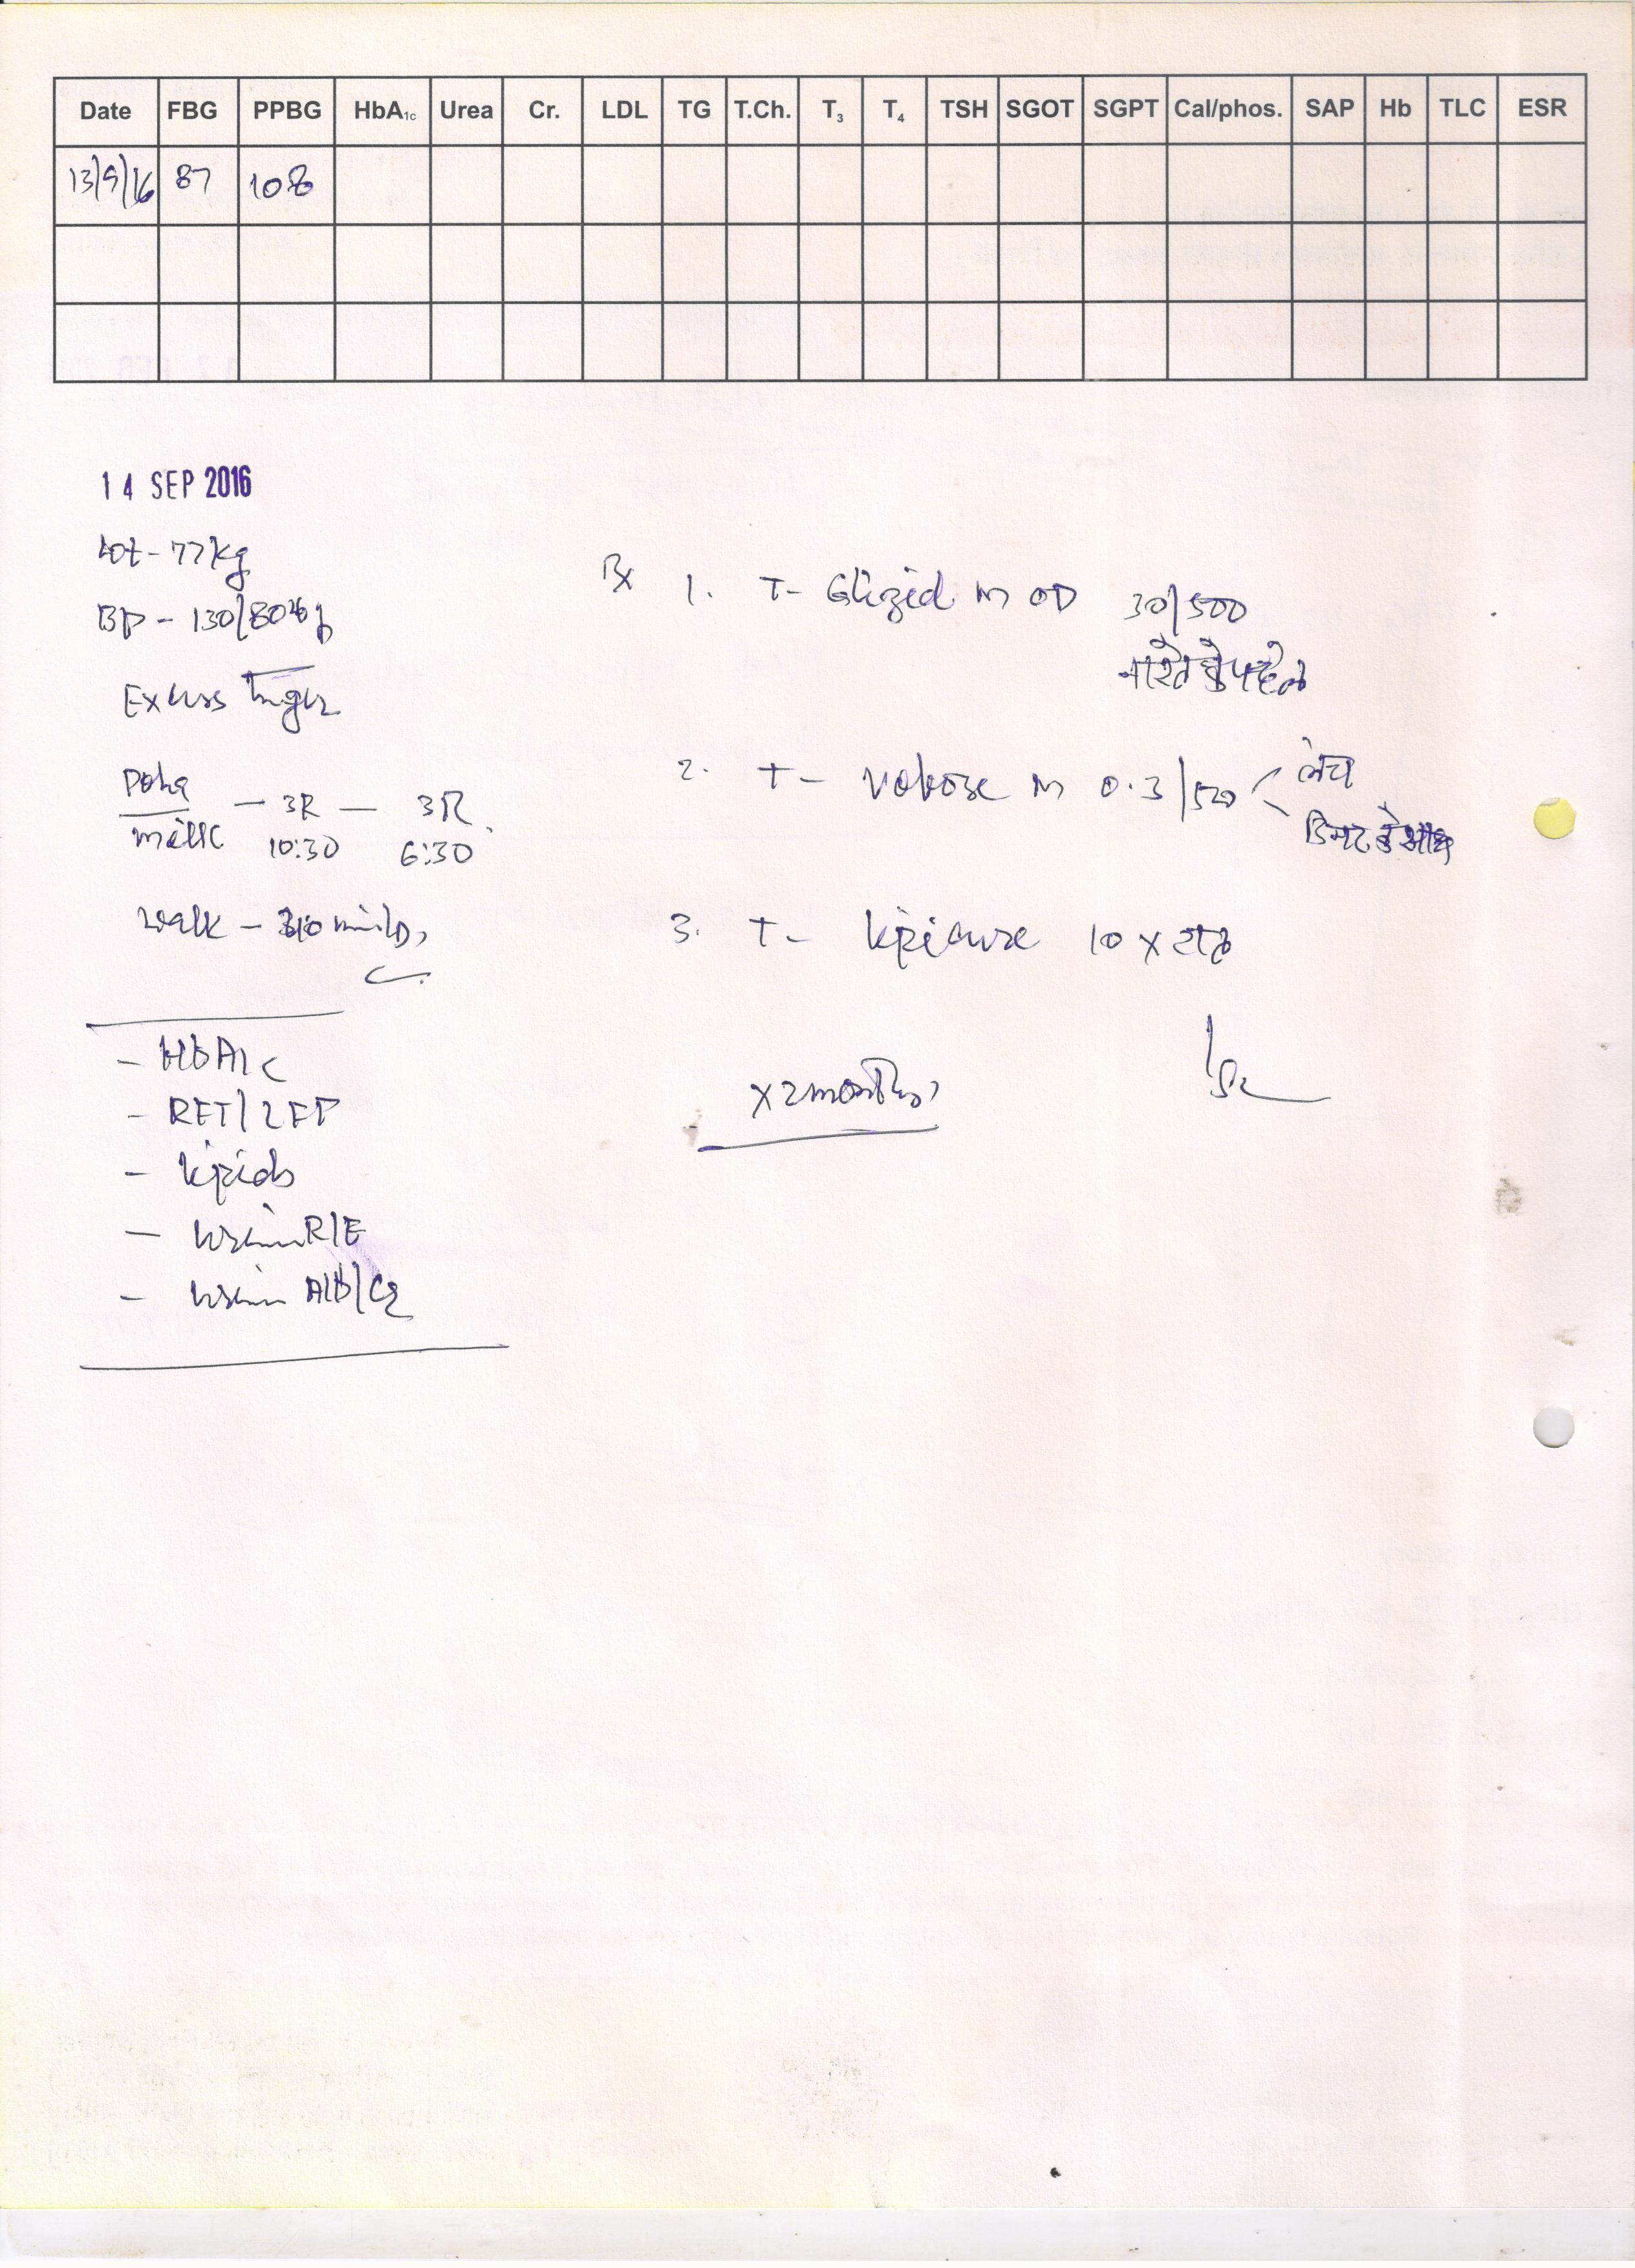 Date FBG PPBG HbA1c Urea Cr. LDL TG T.Ch. T3 T4 TSH SGOT SGPT Cal/phos. SAP Hb TLC ESR
13/9/16 87 108
14 SEP 2016
Wt - 77 kg
BP - 130/80
Excess hunger
Poha - 3R - 3R
milk 10:30 6:30
Walk -
- HbA1c
- RFT/LFT
- Lipids
- Urine R/E
- Urine Alb/Cr
Rx 1. T- Glizid M OD 30/500
नाश्ते के पहले
2. T- Vobose M 0.3/500 < लंच
डिनर के साथ
3. T- Lipicure 10 x रात
x 2 months